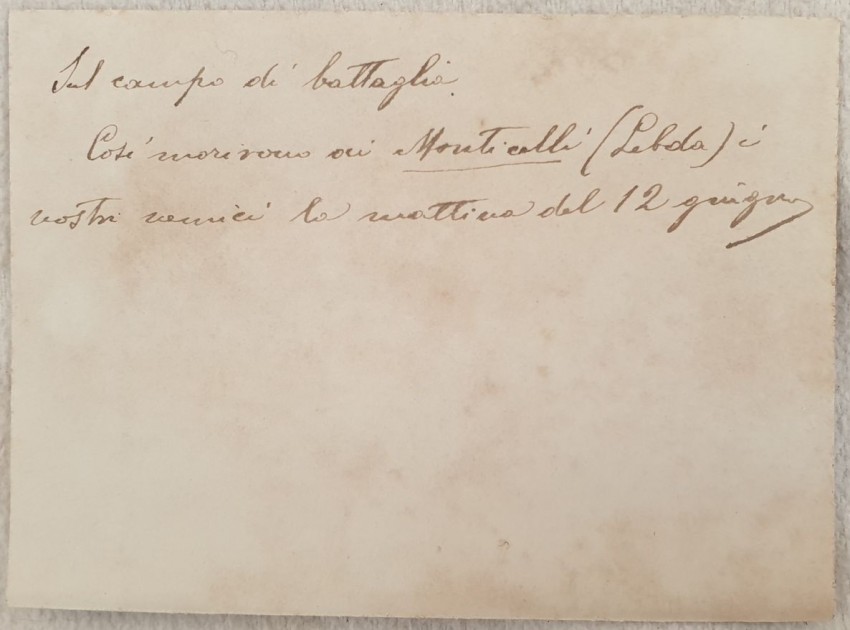 Sul campo di battaglia.
Così morirono ai Monticelli (Lebda) i
nostri nemici la mattina del 12 giugno